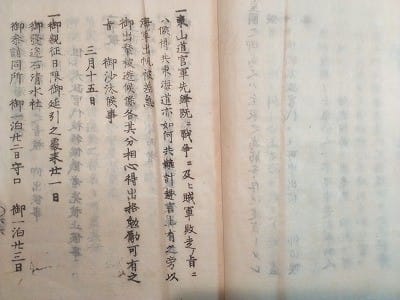 一東山道官軍先鋒既ニ戦争ニ及ヒ賊軍敗走ノ旨ニ
候得共東海道亦如何共難計趣言上有之旁以
海軍出帆被差急
御出輦被遊候條各其分相心得出格勉励可有之
旨 御沙汰候事
三月十五日
一御親征日限御延引之處来廿一日
御發途石清水社
御参詣同所 御一泊廿二日守口 御一泊廿三日